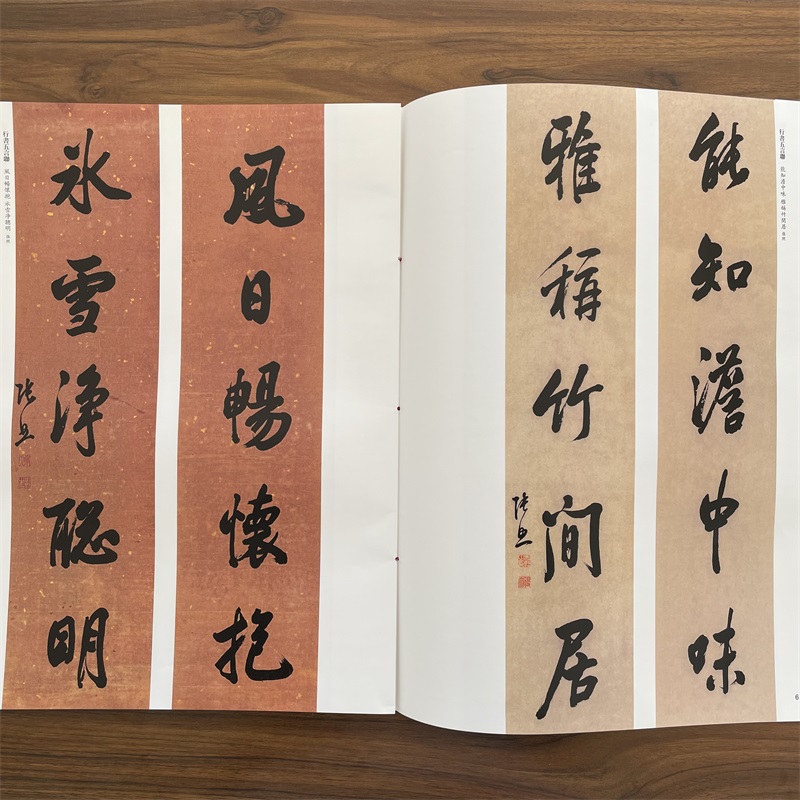 行書五言聯 風日暢懷抱 氷雪浄聰明 張照
風日暢懷抱
氷雪浄聡明
張照
行書五言聯 能知澹中味 雅稱竹間居 張照
能知澹中味
雅稱竹間居
張照
6